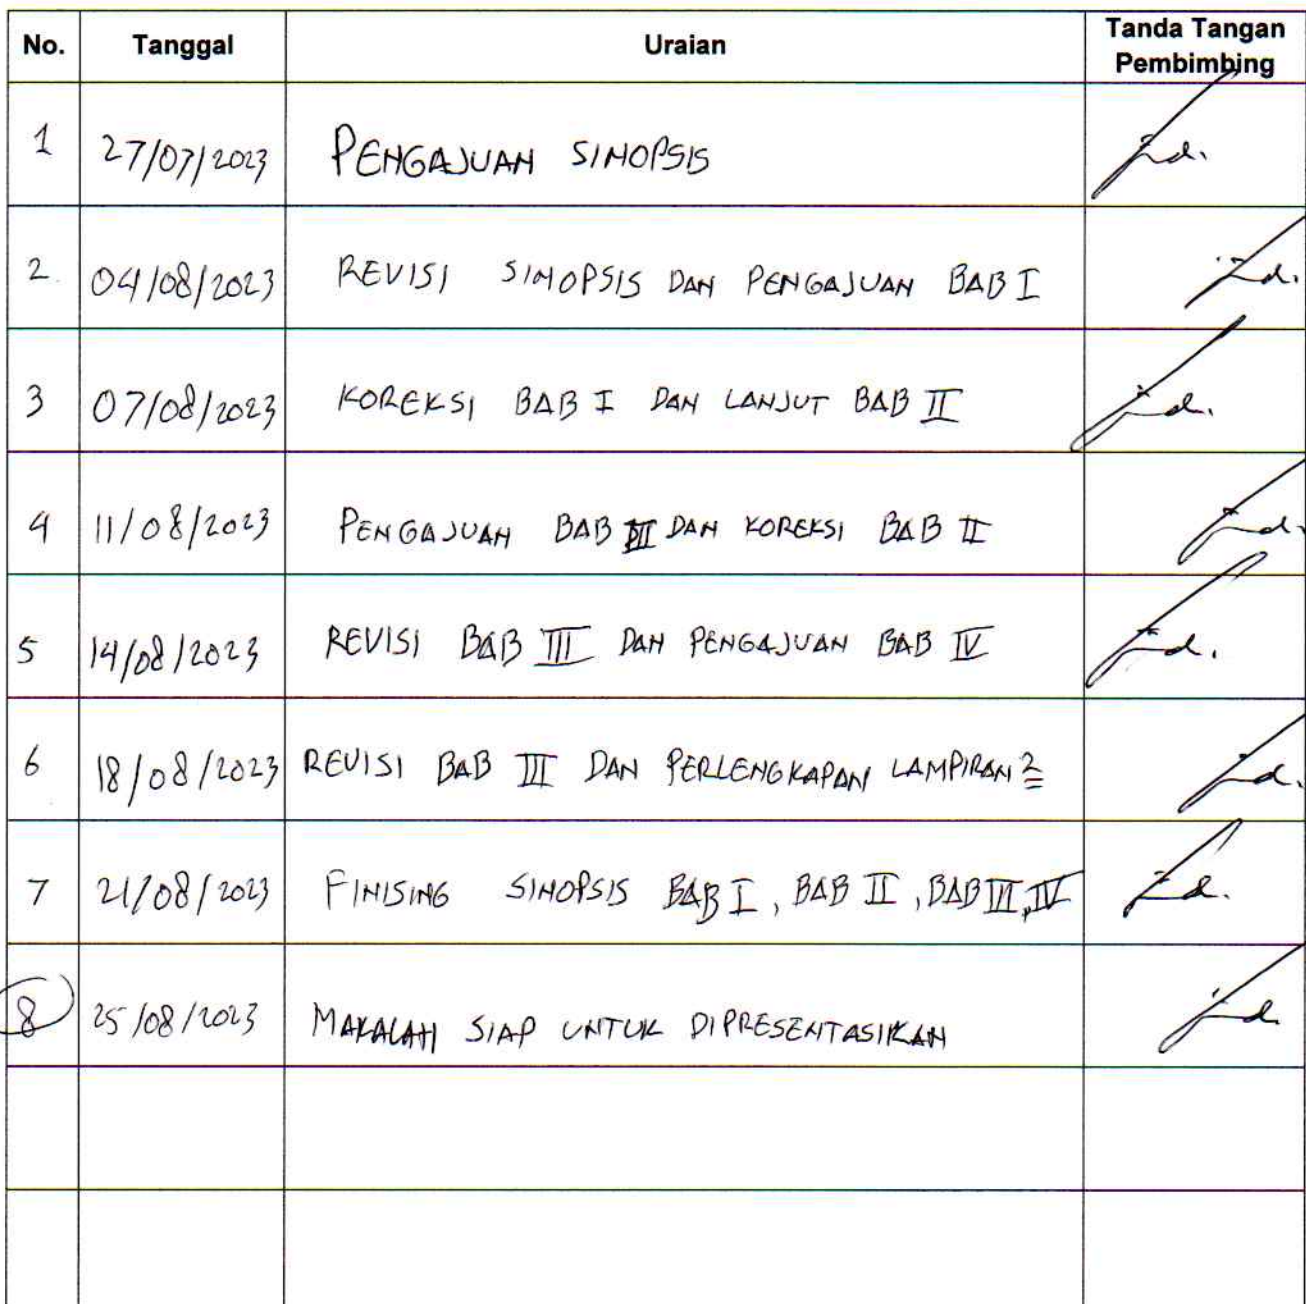 No. Tanggal Uraian Tanda Tangan Pembimbing
1 27/07/2023 PENGAJUAN SINOPSIS
2. 04/08/2023 REVISI SINOPSIS DAN PENGAJUAN BAB I
3 07/08/2023 KOREKSI BAB I DAN LANJUT BAB II
4 11/08/2023 PENGAJUAN BAB III DAN KOREKSI BAB II
5 14/08/2023 REVISI BAB III DAN PENGAJUAN BAB IV
6 18/08/2023 REVISI BAB III DAN PERLENGKAPAN LAMPIRAN2
7 21/08/2023 FINISING SINOPSIS BAB I, BAB II, BAB III, IV
8 25/08/2023 MAKALAH SIAP UNTUK DIPRESENTASIKAN